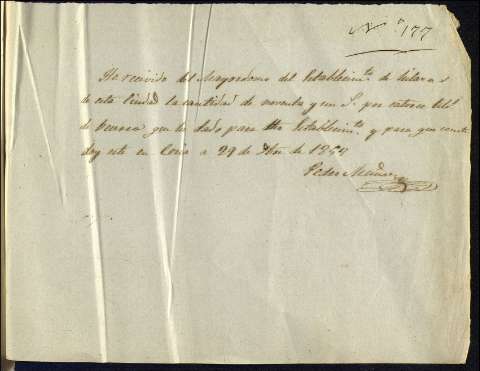 N.º 177
He recivido del Mayordomo del Establecim.to de
de esta Ciudad la cantidad de noventa y un R.s por catorce
de que he dado para dho Establecim.to y para que conste
doy este en Coria a 29 de Dbre de 1857
Pedro